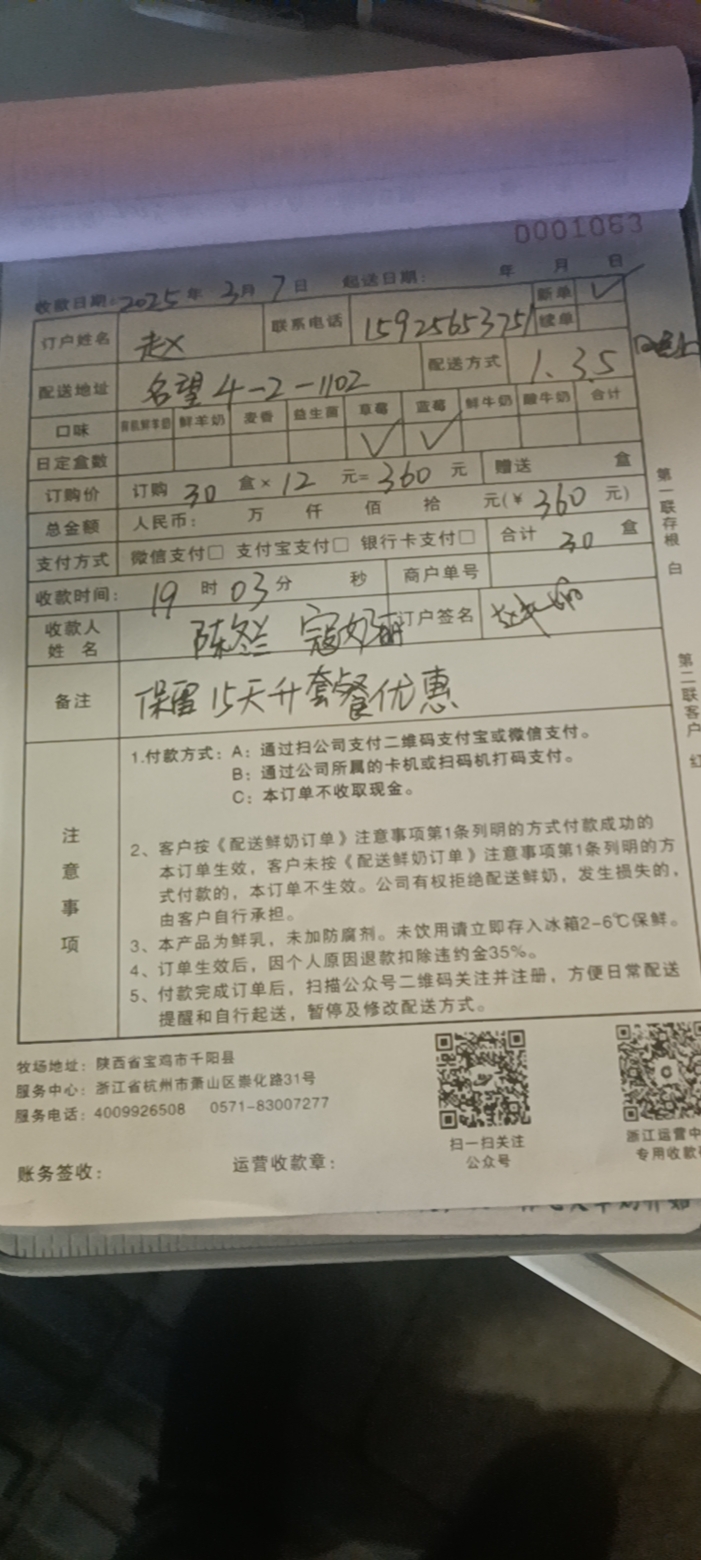 0001063
收款日期:2025年 3月 7日 起送日期: 年 月 日
订户姓名 赵 联系电话 15925653751 新单 ✓
续单
配送地址 名望4-2-1102 配送方式 1.3.5
口味 鲜羊奶 麦香 益生菌 草莓 蓝莓 鲜牛奶 酸牛奶 合计
日定盒数 ✓ ✓
订购价 订购 30 盒×12 元=360 元 赠送 盒
总金额 人民币: 万 仟 佰 拾 元(¥ 360 元)
支付方式 微信支付□ 支付宝支付□ 银行卡支付□ 合计 30 盒
收款时间: 19 时 03 分 秒 商户单号
收款人姓名 陈冬兰 寇奶丽 订户签名
备注 保留15天升套餐优惠
注意事项
1.付款方式:A:通过扫公司支付二维码支付宝或微信支付。
B:通过公司所属的卡机或扫码机打码支付。
C:本订单不收取现金。
2、客户按《配送鲜奶订单》注意事项第1条列明的方式付款成功的
本订单生效,客户未按《配送鲜奶订单》注意事项第1条列明的方
式付款的,本订单不生效。公司有权拒绝配送鲜奶,发生损失的,
由客户自行承担。
3、本产品为鲜乳,未加防腐剂。未饮用请立即存入冰箱2-6℃保鲜。
4、订单生效后,因个人原因退款扣除违约金35%。
5、付款完成订单后,扫描公众号二维码关注并注册,方便日常配送
提醒和自行起送,暂停及修改配送方式。
第一联存根 白
第二联客户 红
牧场地址:陕西省宝鸡市千阳县
服务中心:浙江省杭州市萧山区崇化路31号
服务电话:4009926508 0571-83007277
扫一扫关注
公众号
浙江运营中
专用收款
账务签收: 运营收款章: